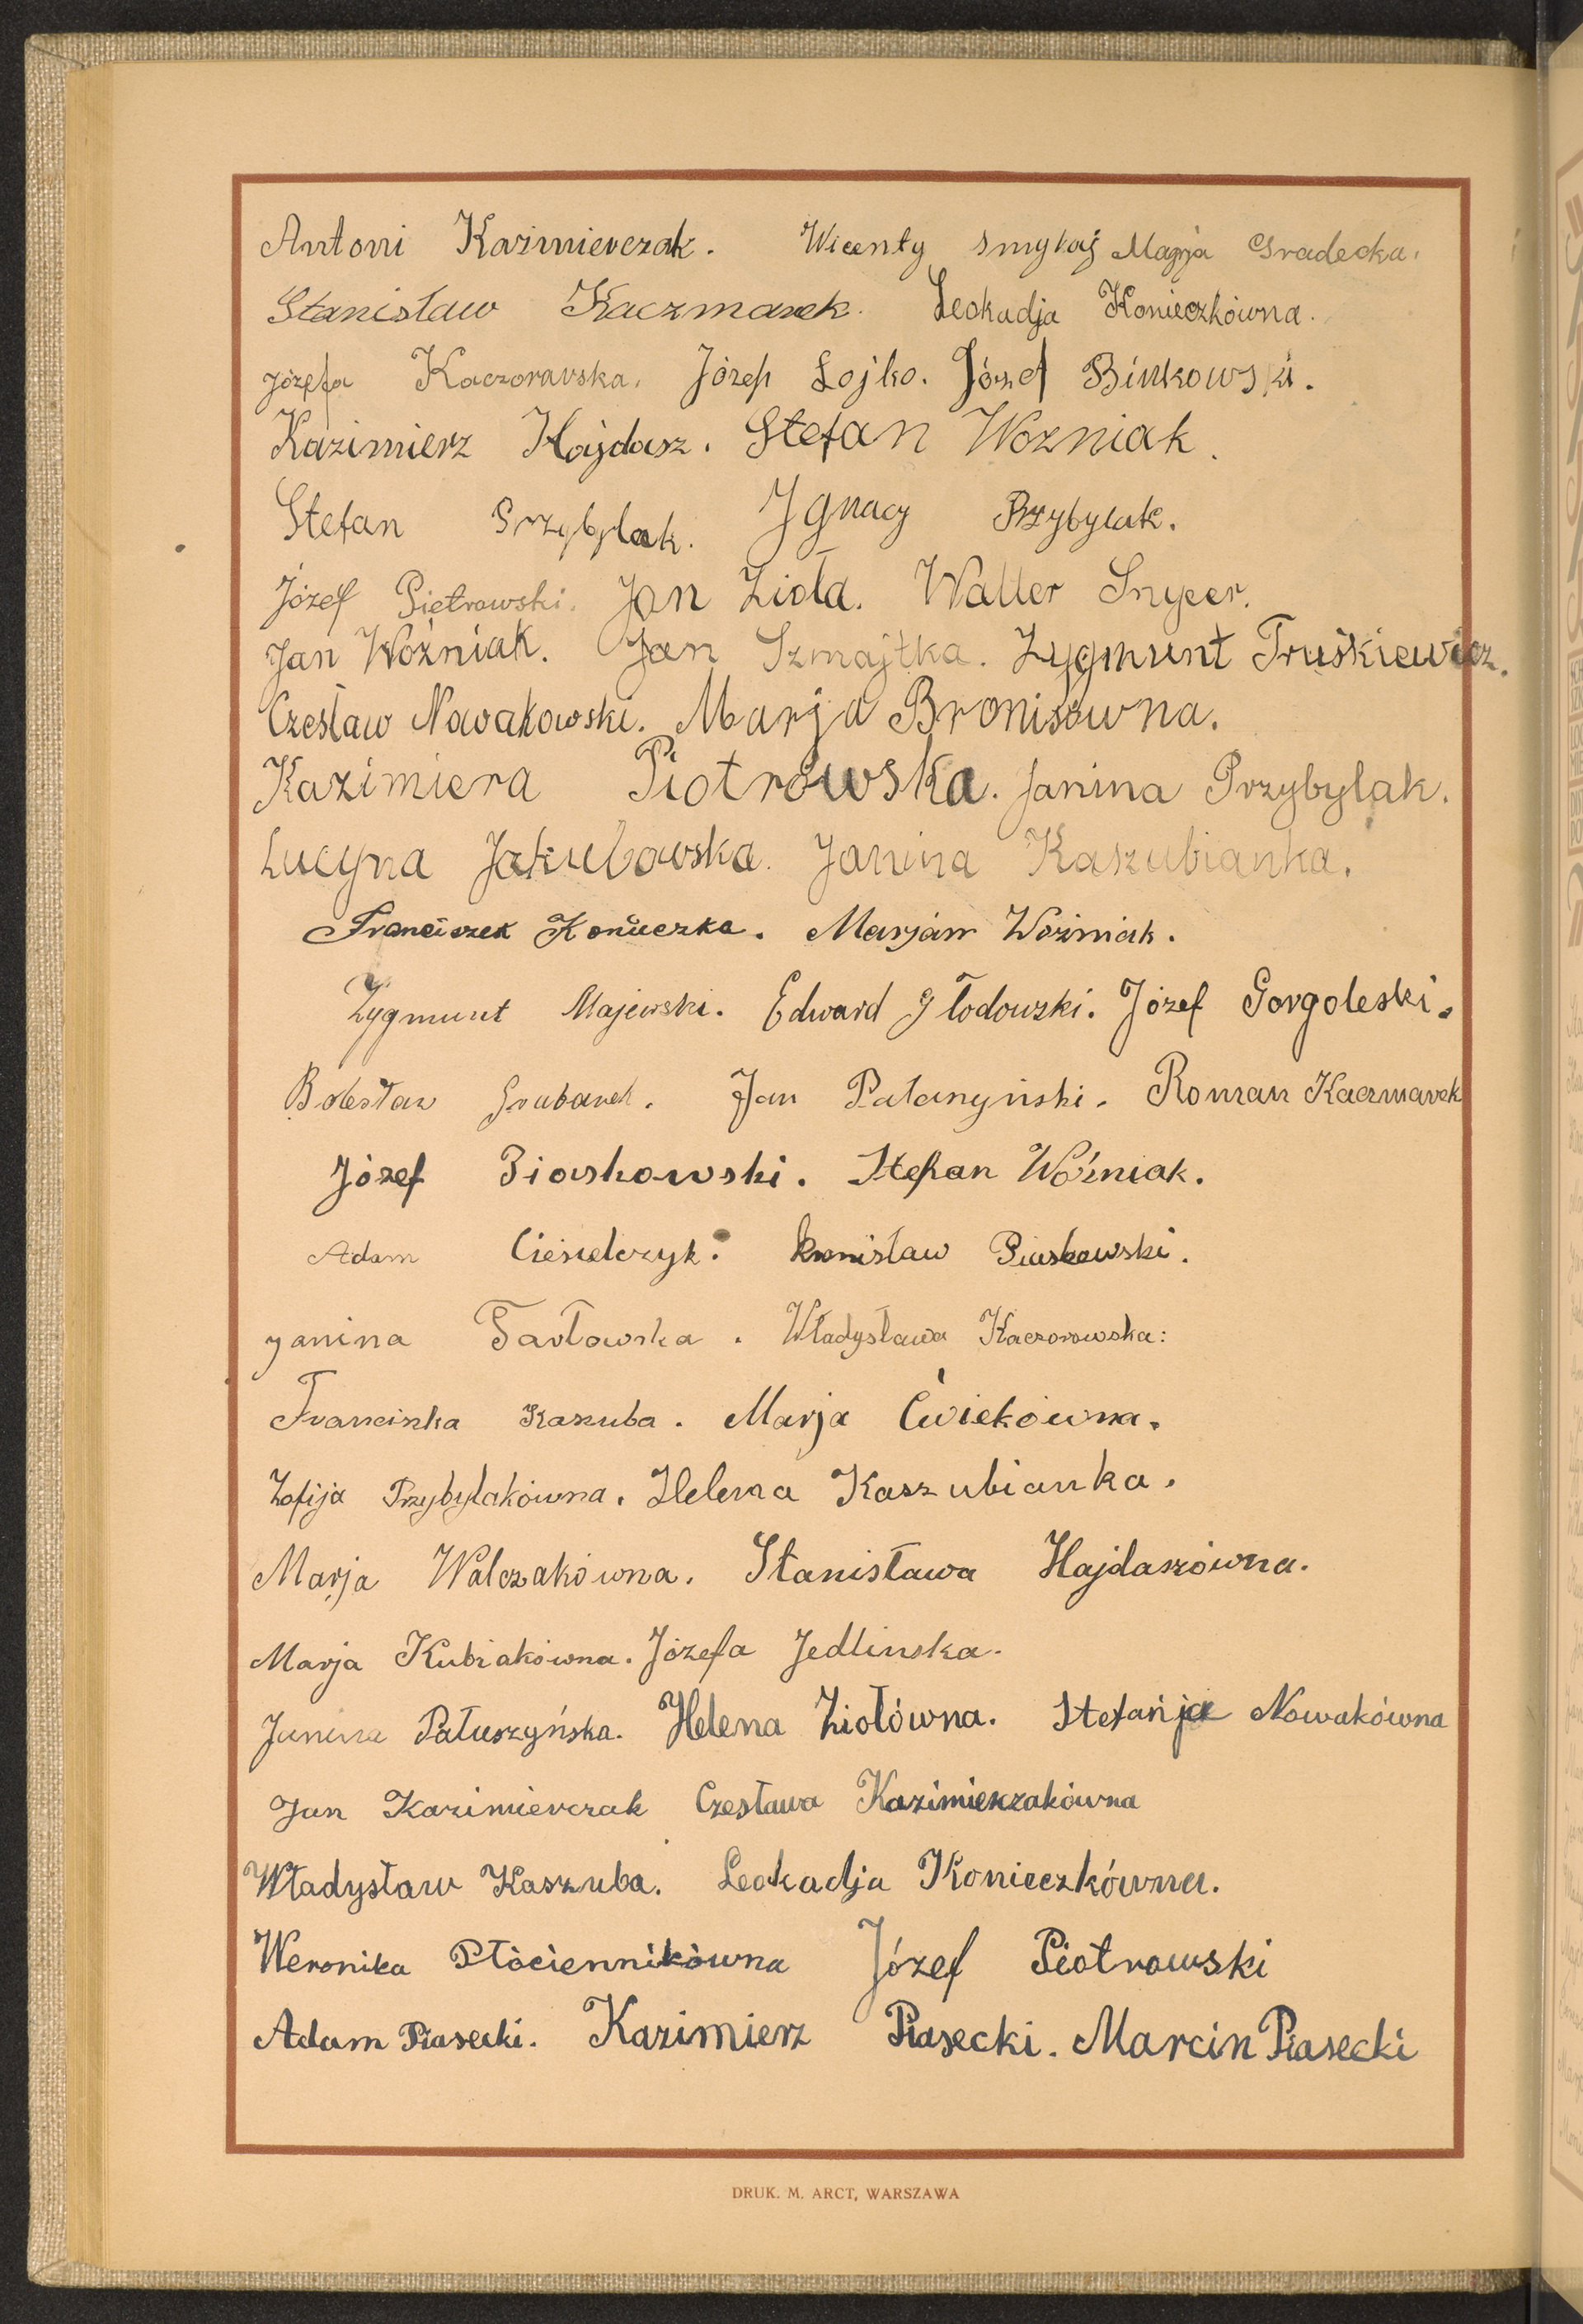 Antoni Kazimierczak. Wicenty Smykaj Marja Gradecka.
Stanisław Kaczmarek. Leokadja Konieczkówna.
Józefa Kaczorawska. Józef Łojko. Józef Binkowski.
Kazimierz Hajdasz. Stefan Wozniak.
Stefan Przybylak. Jgnacy Przybylak.
Józef Piętrowski. Jan Zioła. Walter
Jan Woźniak. Jan Szmajtka. Zygmunt Truśkiewicz.
Czesław Nowakowski. Marja Bronisówna.
Kazimiera Piotrowska. Janina Przybylak.
Lucyna Jakubowska. Janina Kaszubianka.
Franciszek Konieczka. Marjan Woźniak.
Zygmunt Majewski. Edward Głodowski. Józef Gorgoleski.
Bolesław Grubarek. Jan Roman Kaczmarek
Józef Piaskowski. Stefan Woźniak.
Adam Ciesielczyk. Bronisław Piaskowski.
Janina Pawłowska. Władysława Kaczorowska:
Francizka Kaszuba. Marja Ćwiekówna.
Zofija Przybylakówna. Helena Kaszubianka.
Marja Walczakówna. Stanisława Hajdaszówna.
Marja Kubiakówna. Józefa Jedlinska.
Janina Pałuszyńska. Helena Ziołówna. Stefańja Nowakówna
Jan Kazimierczak Czesława Kazimierzakówna
Władysław Kaszuba. Leokadja Konieczkówna.
Weronika Płóciennikówna Józef Piotrowski
Adam Piasecki. Kazimierz Piasecki. Marcin Piasecki
DRUK. M. ARCT, WARSZAWA